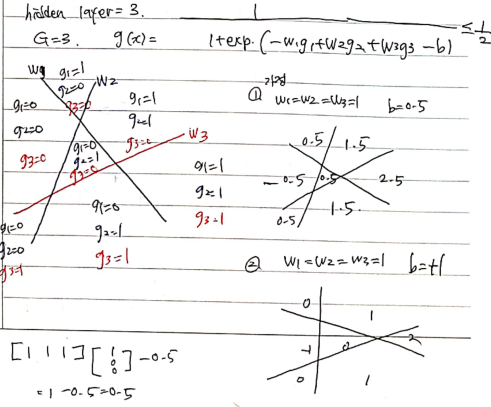 hidden layer = 3.
G=3. g(x) = 1 / 1+exp.(-w1g1+w2g2+w3g3 -b) ≤ 1/2
w1 g1=1 g2=0 g3=0
w2
g1=0 g2=0 g3=0
g1=1 g2=1 g3=0
w3
g1=0 g2=1 g3=0
g1=1 g2=1 g3=1
g1=0 g2=1 g3=1
g1=0 g2=0 g3=1
가정
① w1=w2=w3=1 b=0.5
0.5 1.5
-0.5 0.5 2.5
0.5 1.5.
② w1=w2=w3=1 b=+1
0 1
-1 0 2
0 1
[1 1 1] [1 0 0] -0.5
=1 -0.5=0.5